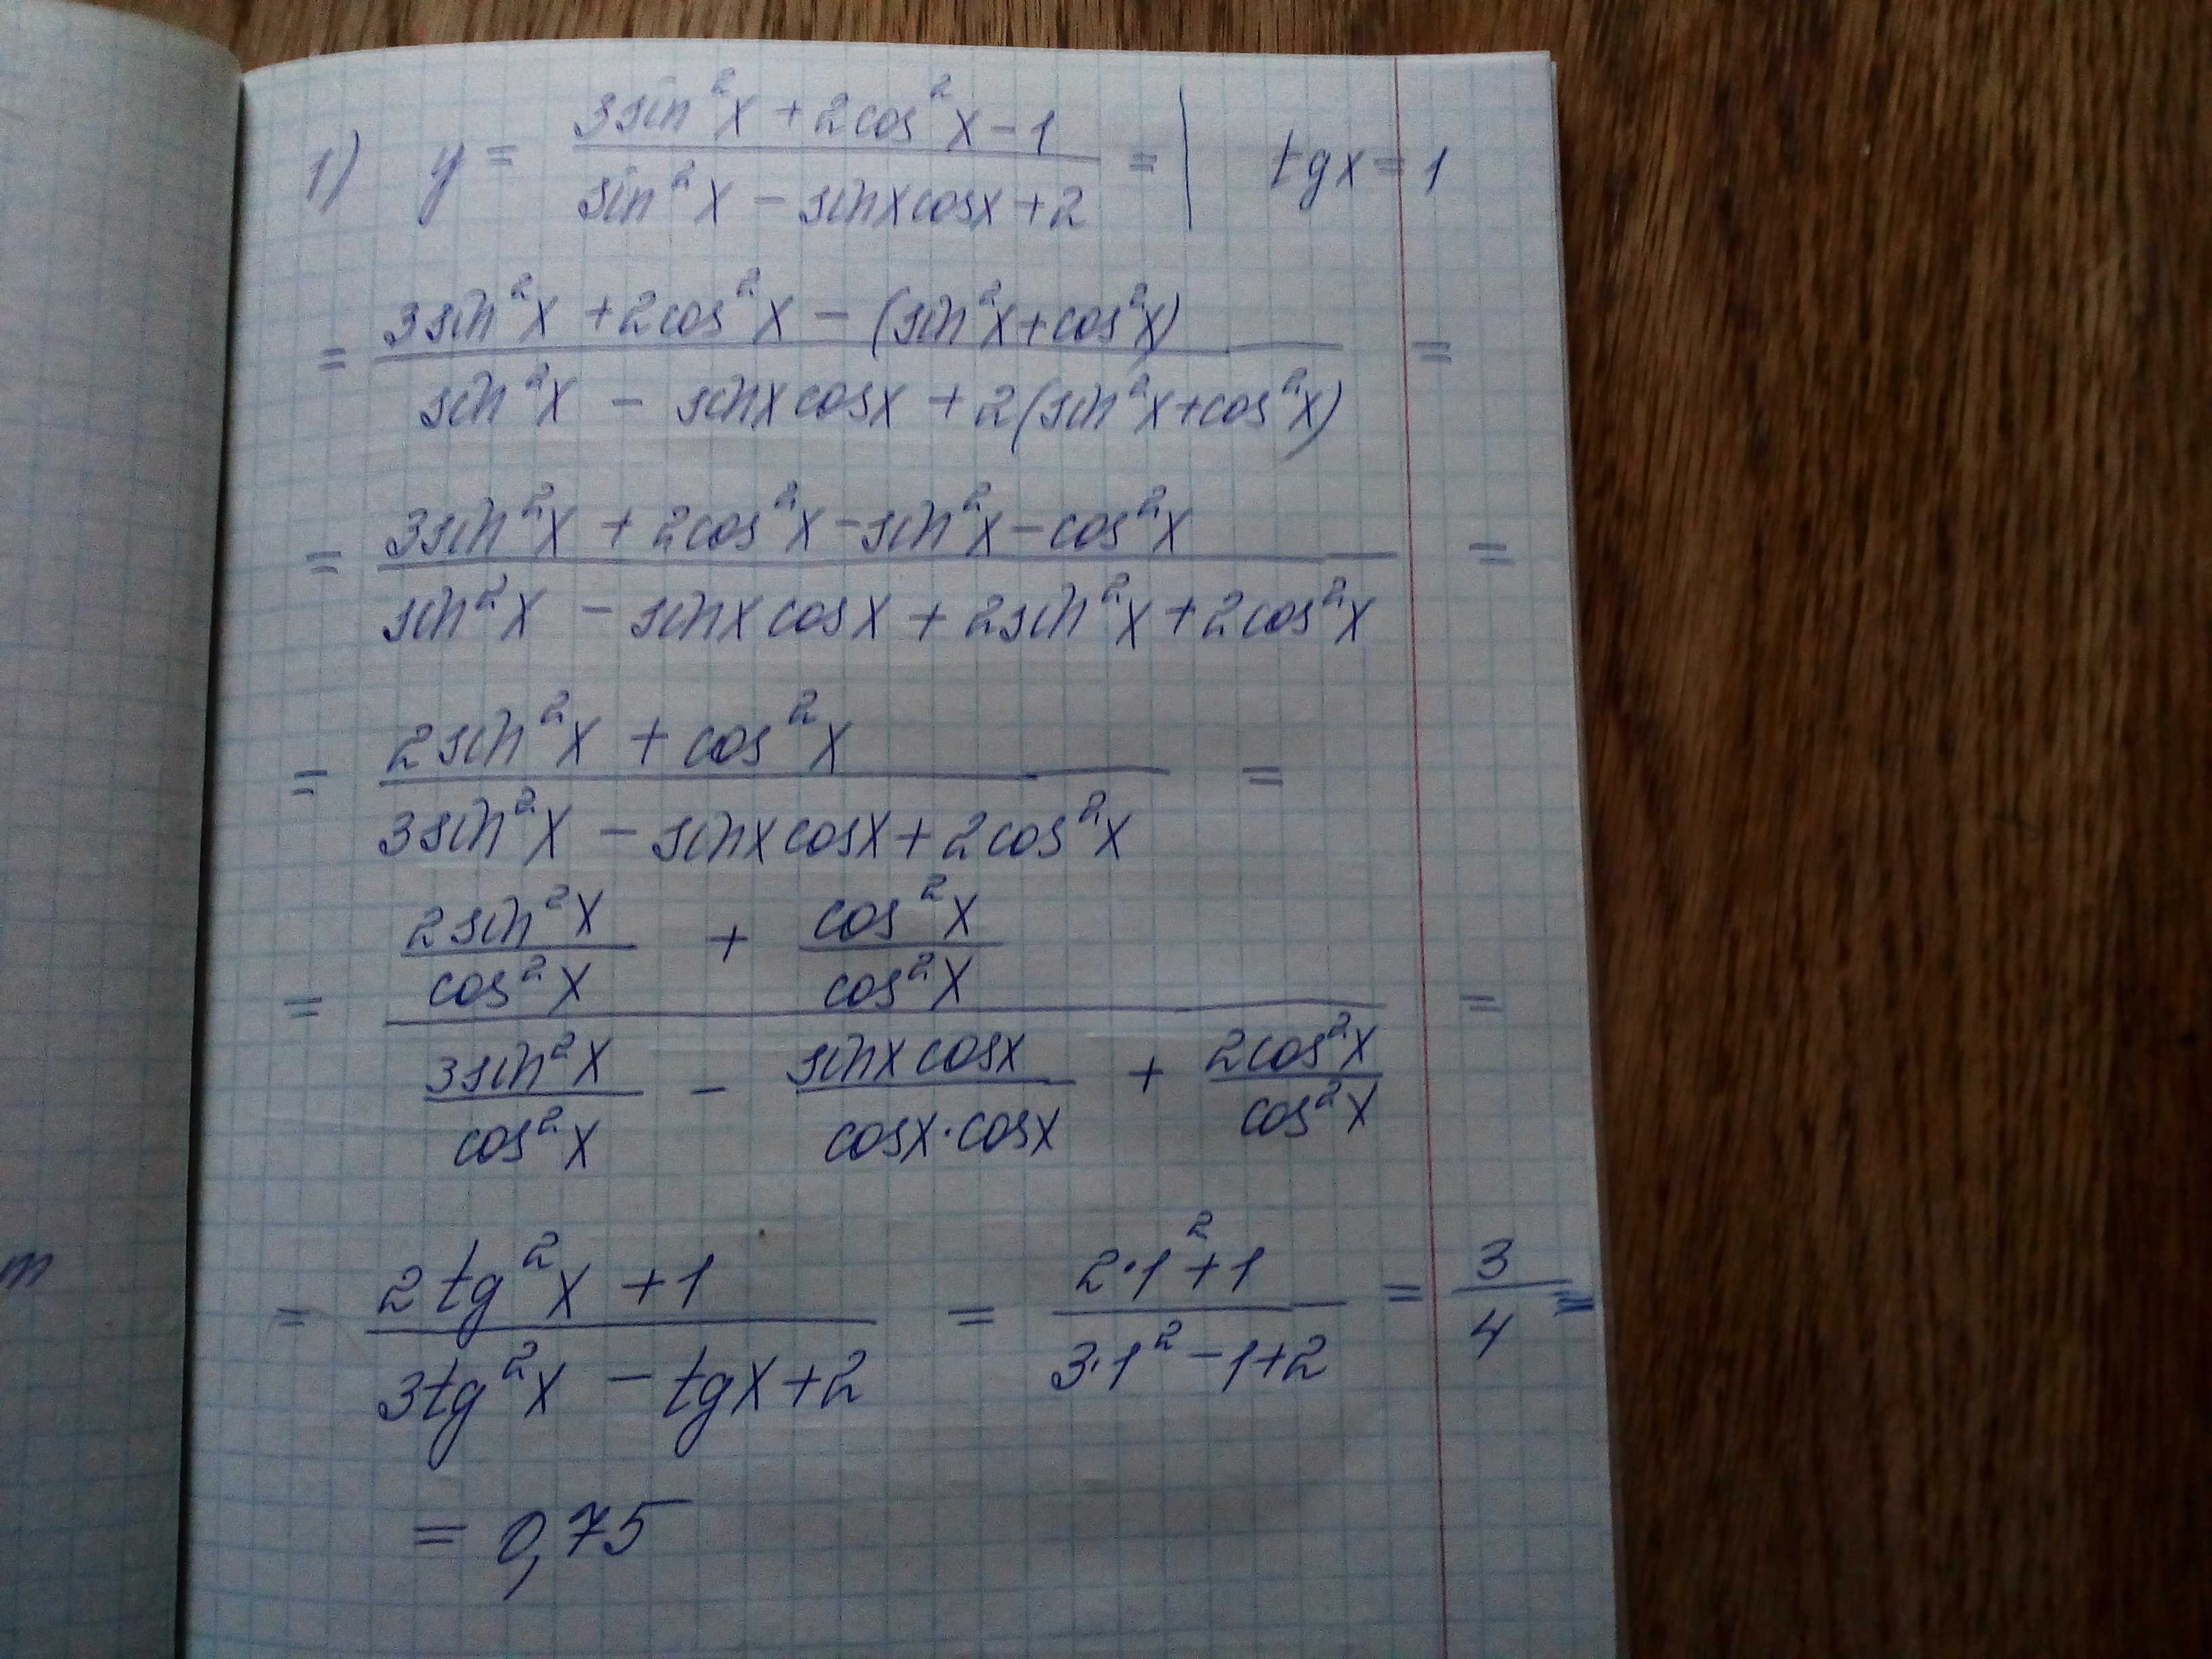 1) y = (3sin²x + 2cos²x - 1) / (sin²x - sinxcosx + 2) = | tgx = 1
= (3sin²x + 2cos²x - (sin²x + cos²x)) / (sin²x - sinxcosx + 2(sin²x + cos²x)) =
= (3sin²x + 2cos²x - sin²x - cos²x) / (sin²x - sinxcosx + 2sin²x + 2cos²x) =
= (2sin²x + cos²x) / (3sin²x - sinxcosx + 2cos²x) =
= (2sin²x / cos²x + cos²x / cos²x) / (3sin²x / cos²x - sinxcosx / cosx·cosx + 2cos²x / cos²x) =
m
= (2tg²x + 1) / (3tg²x - tgx + 2) = (2·1² + 1) / (3·1² - 1 + 2) = 3/4 =
= 0,75